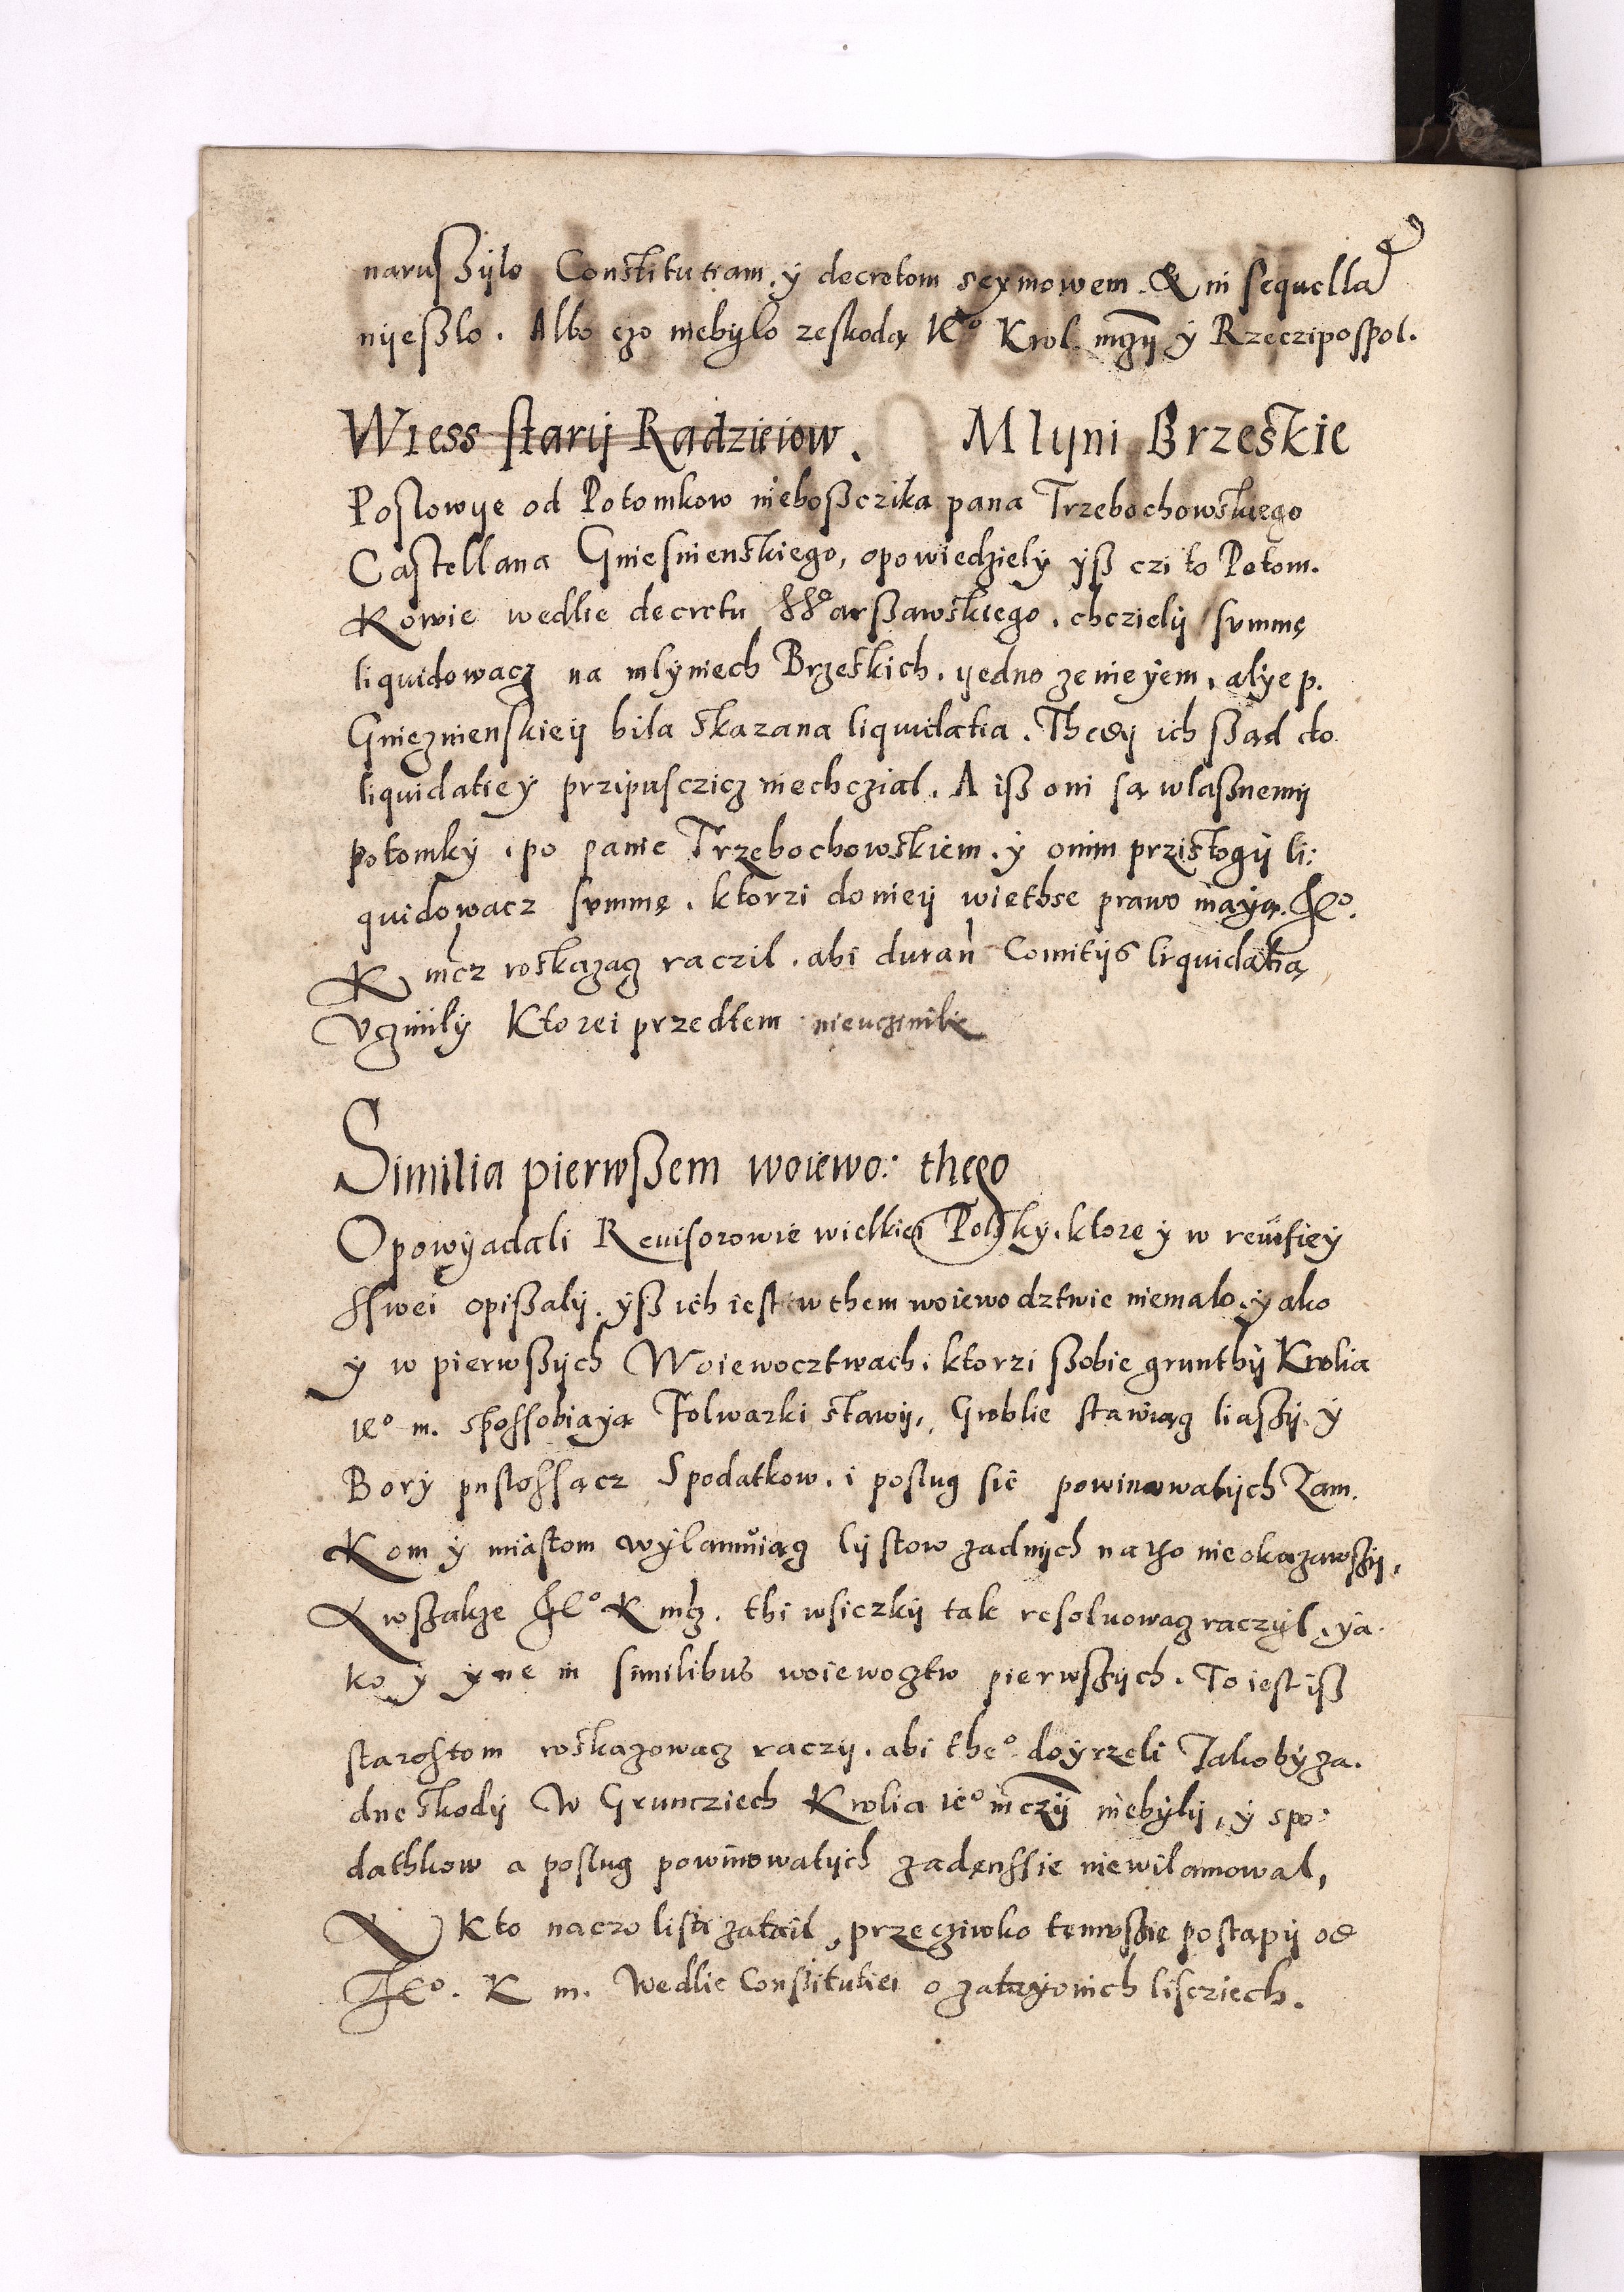 narußÿlo Constitutiam. ÿ decretom seymowem. & in sequellą
nijeßlo. Albo czo niebÿlo zeskodą Ie° Krol. mczij ÿ Rzeczipospol.
Wiess starij Radzieiow. Mlijni Brzeskie
Poslowije od Potomkow nieboßczika pana Trzebochowskiego
Castellana Gniesnienskiego, opowiedzielÿ ÿß czi to Potom.
kowie wedlie decretu Warßawskiego. chczielij summę
liquidowacz na mlÿniech Brzeskich. ijedno ze nieÿem, alÿe p.
Gnieznienskieij bila skazana liquidatia. Thedij ich ßąd do
liquidatieÿ przipusczicz niechczial. A iß oni są wlaßnemij
potomkÿ. po panie Trzebochowskiem. ÿ onim przistogij li:
quidowacz summę. ktorzi do nieij wiethse prawo maÿą. Je°.
K mcz roskazacz raczil. abi duran Comitijs liquidatią
Vczinilÿ Ktorei przedtem nieuczinilie
Similia pierwßem woiewo: thego
Opowÿadali Reuisorowie wielkiei Polskÿ. ktore ÿ w reuisieÿ
sswei opißalij. ÿß ich iest w them woiewodztwie niemalo, ÿako
ÿ w pierwßijch Woiewocztwach. ktorzi ßobie grunthij Krolia
Ie° m. sposobiaÿą Folwarki stawij, Groblie stawiącz liaskij. ÿ
Borÿ pustossącz Spodatkow. i poslug sie powinowatijch Zam.
kom ÿ miastom wÿlamuiącz lijstow zadnijch na tho nie okazawszij,
A wszakze Je° K mcz. thi wsiczkij tak resoluowacz raczÿl, ÿa.
ko ÿ ÿne in similibus woiewocztw pierwszijch. To iest iß
starostom roskazowacz raczij. abi the° doÿrzeli Jakobÿ za.
dne skodij W Grunciech Krolia ie° mczij niebÿlij, ÿ spo:
dathkow a poslug powinowatijch zadenssie niewilamowal,
A kto naczo listi zatail, przecziwko temu szie postąpij od
Je°. K m. Wedlie Constitutiei o zataÿonich lisciech.